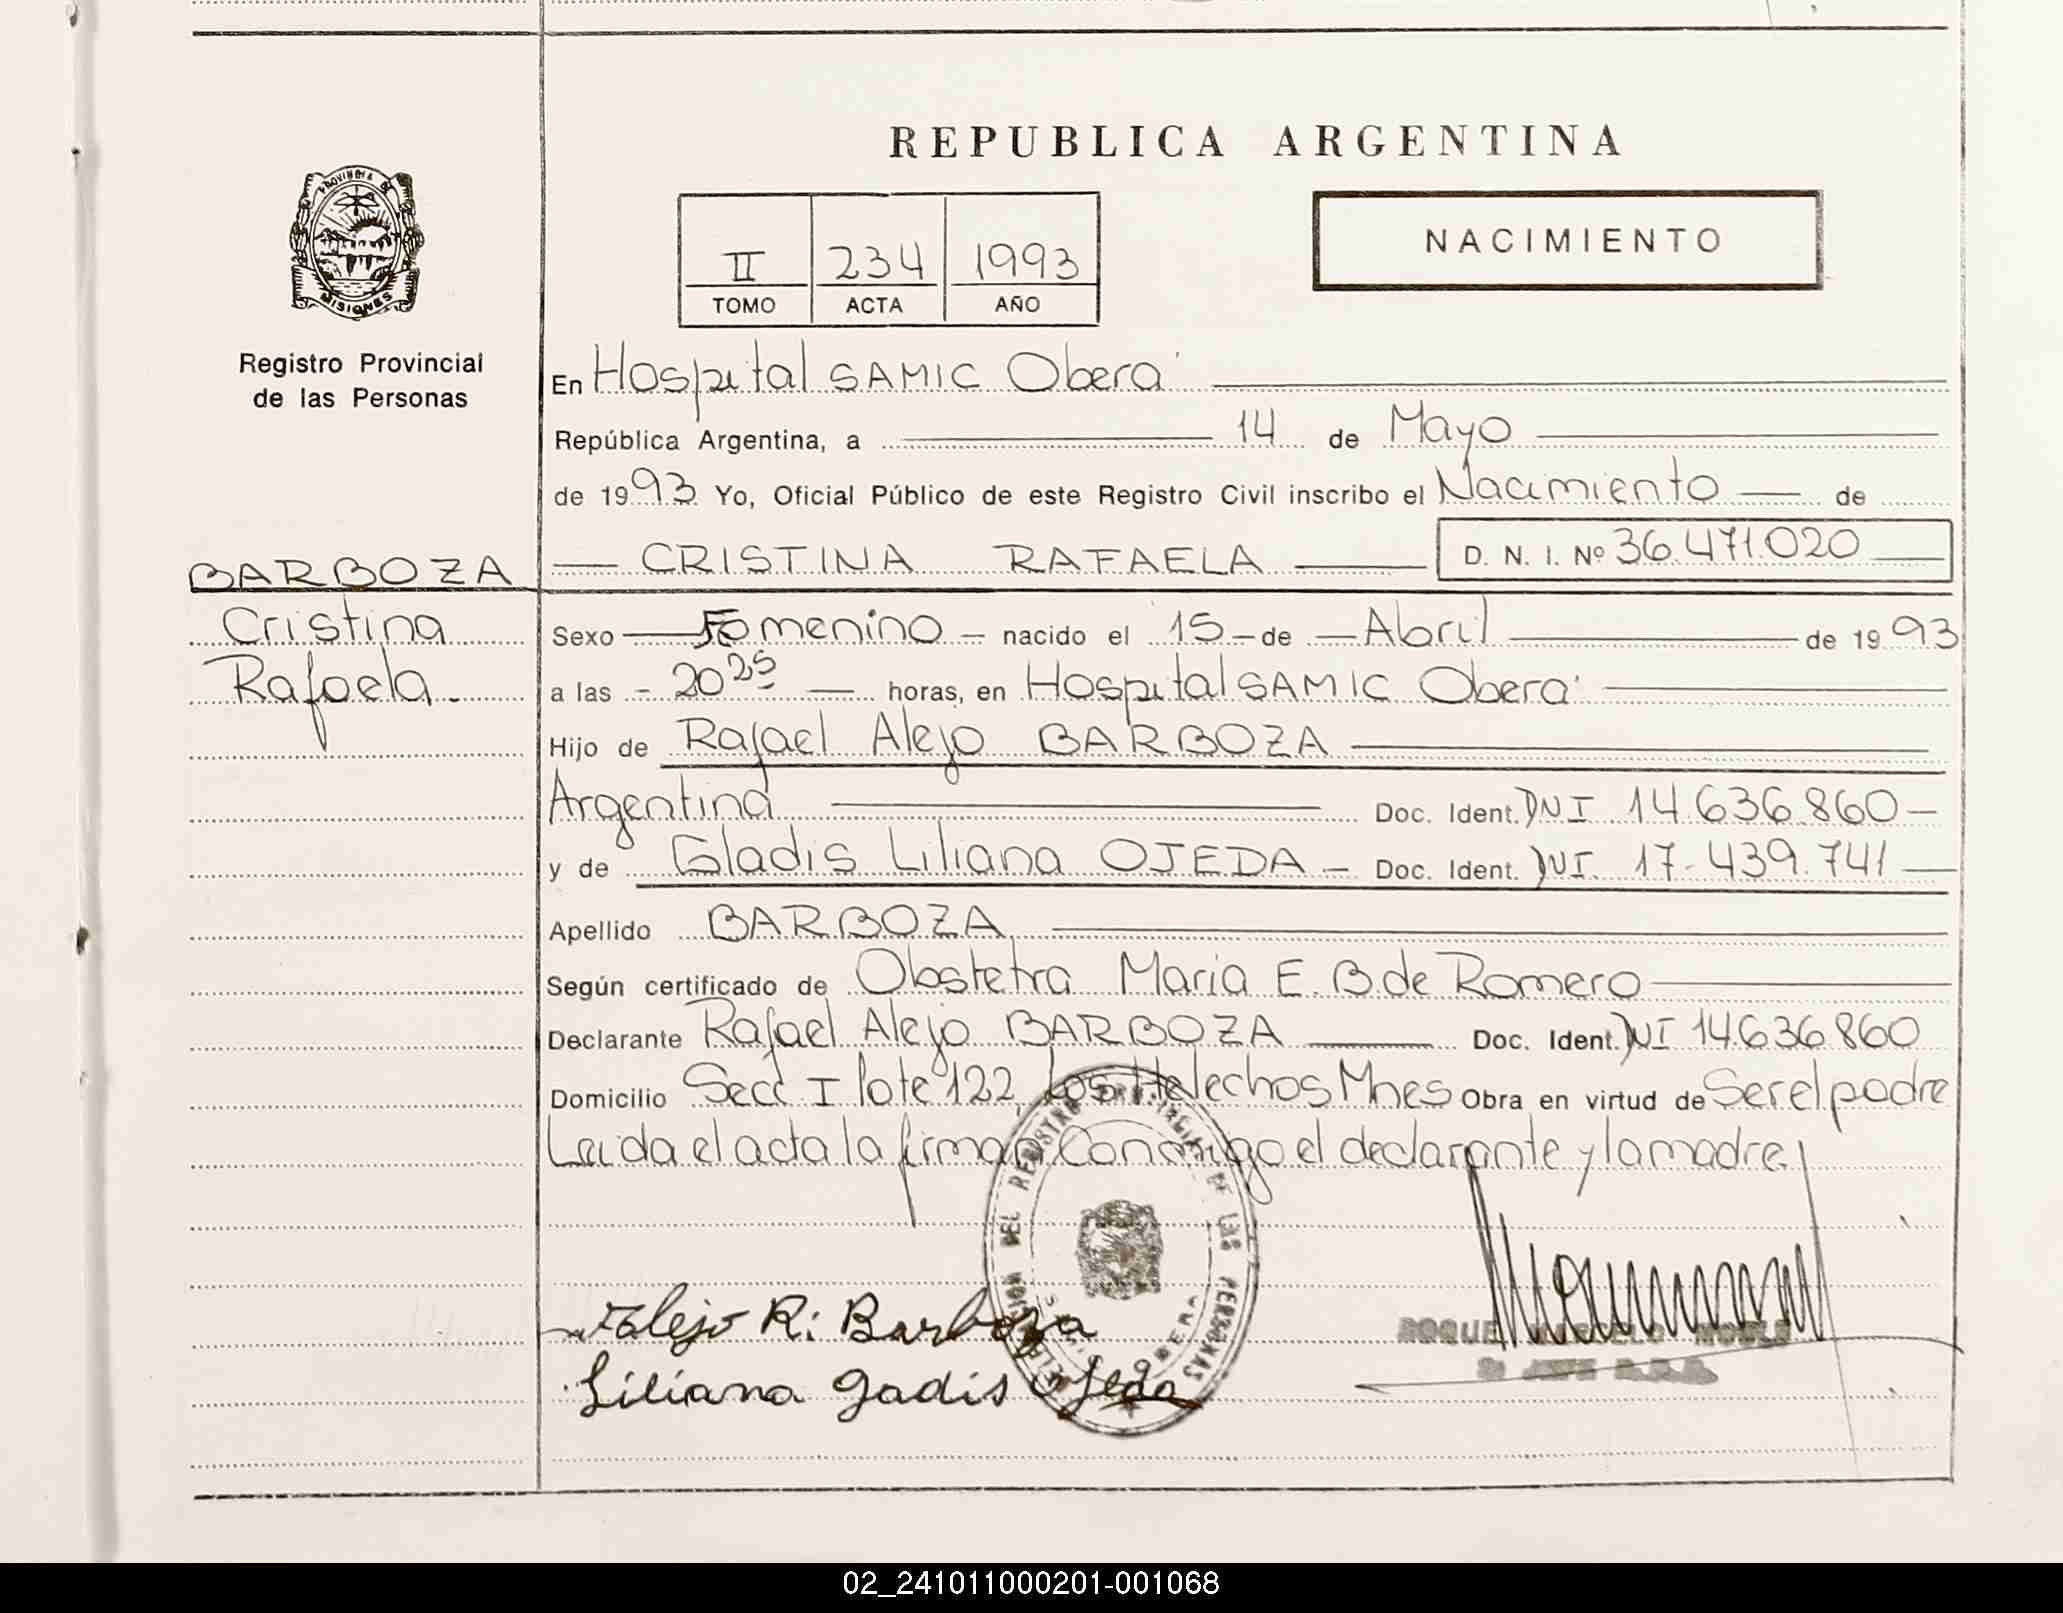 REPUBLICA ARGENTINA
PROVINCIA DE
MISIONES
Registro Provincial
de las Personas
II 234 1993
TOMO ACTA AÑO
NACIMIENTO
En Hospital SAMIC Oberá
República Argentina, a 14 de Mayo
de 1993 Yo, Oficial Público de este Registro Civil inscribo el Nacimiento de
BARBOZA CRISTINA RAFAELA D. N. I. Nº 36.471.020
Cristina Sexo Femenino nacido el 15 de Abril de 1993
Rafaela. a las 20 25 horas, en Hospital SAMIC Oberá
Hijo de Rafael Alejo BARBOZA
Argentina Doc. Ident. DNI 14.636.860
y de Gladis Liliana OJEDA Doc. Ident. DNI. 17.439.741
Apellido BARBOZA
Según certificado de Obstetra Maria E. B de Romero
Declarante Rafael Alejo BARBOZA Doc. Ident. DNI 14.636.860
Domicilio Secc I lote 122, Los Helechos Mnes Obra en virtud de Ser el padre
Leida el acta la firman Conmigo el declarante y la madre
DEL REGISTRO PROVINCIAL DE LAS PERSONAS
OBERA
Alejo R. Barboza
Liliana gadis Ojeda
ROQUE
02_241011000201-001068